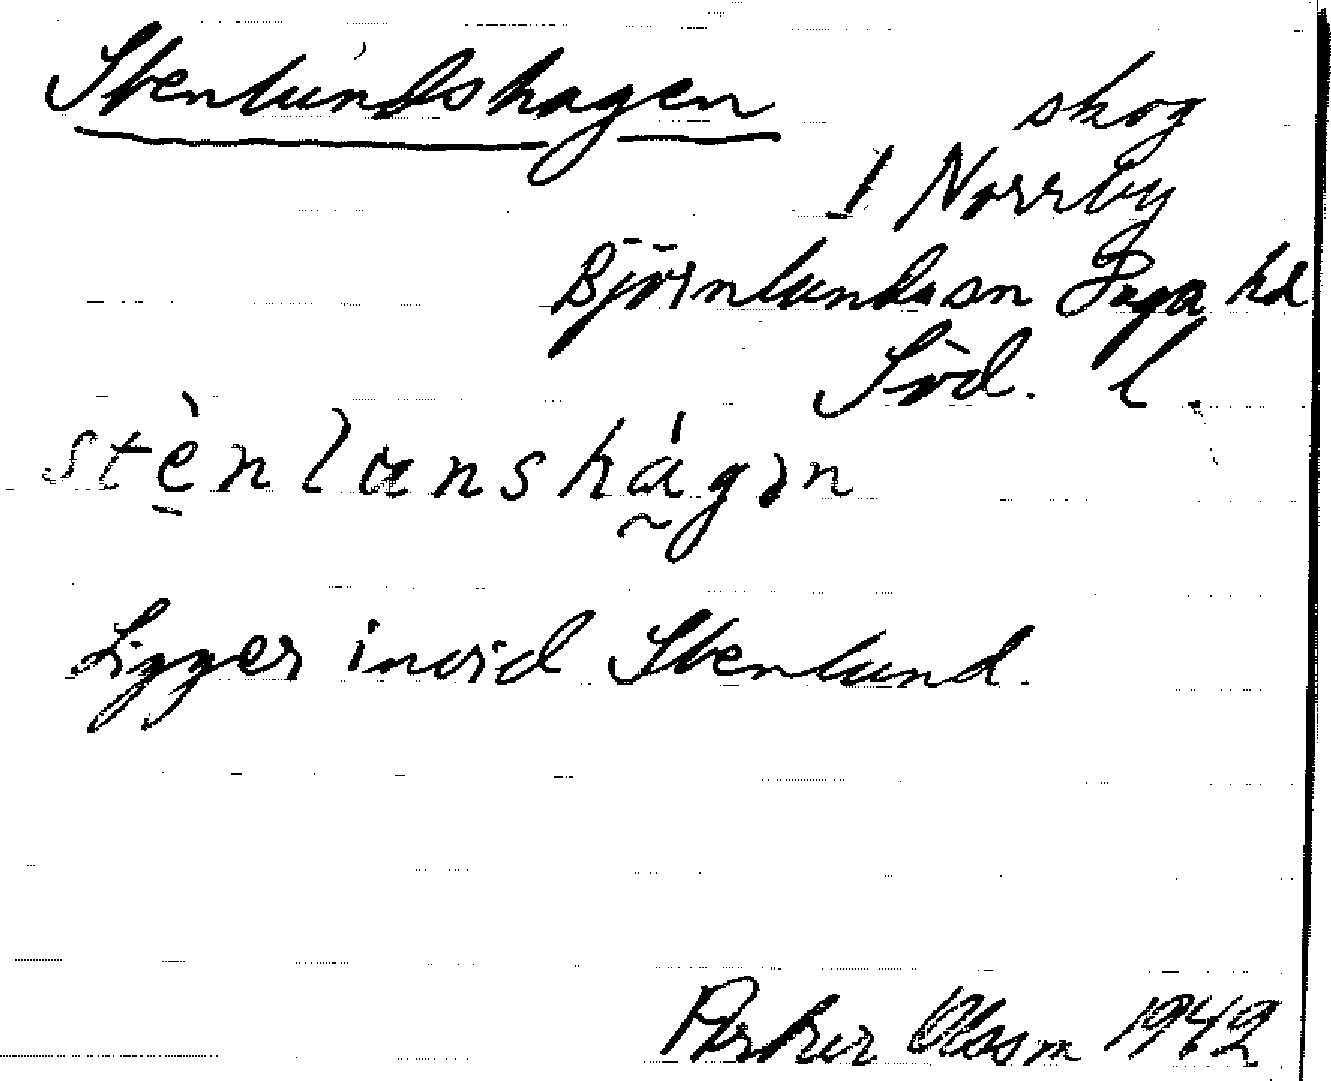 Stenlundshagen
skog
1 Norrby
Björnlunda sn Daga hd
Söd. l.
stènlunshágən
Ligger invid Stenlund.
Olsson 1942